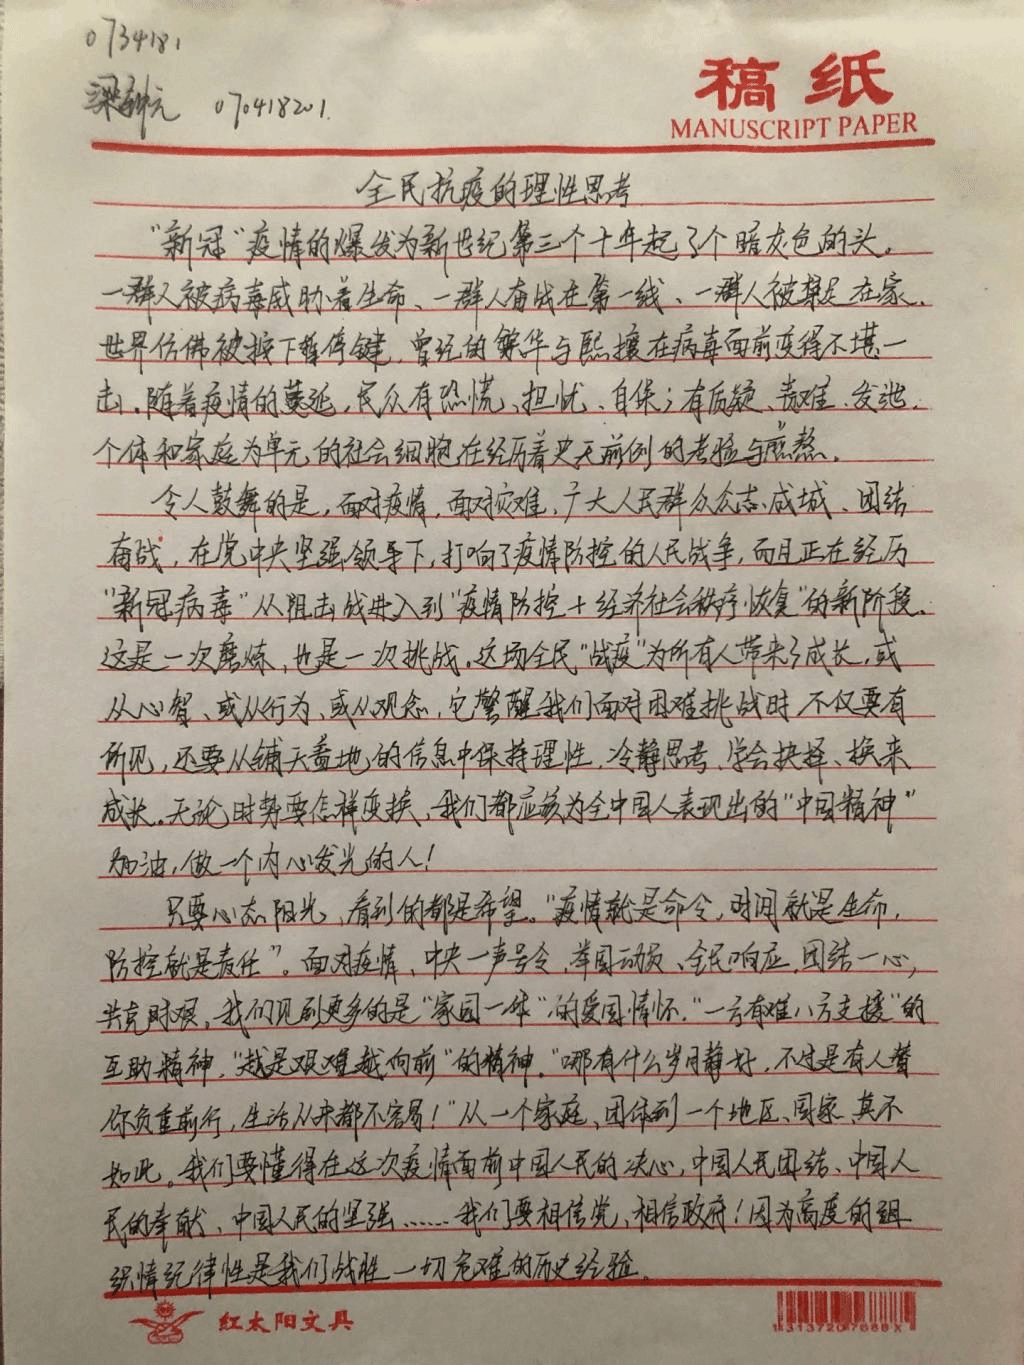 0734181
稿纸
梁 070418201.
MANUSCRIPT PAPER
全民抗疫的理性思考
"新冠"疫情的爆发为新世纪第三个十年起了个暗灰色的头。
一群人被病毒威胁着生命、一群人奋战在第一线、一群人被禁足在家.
世界仿佛被按下暂停键,曾经的繁华与熙攘在病毒面前变得不堪一
击.随着疫情的蔓延,民众有恐慌、担忧、自保;有质疑、责难、发泄.
个体和家庭为单元的社会细胞在经历着史无前例的考验与煎熬.
令人鼓舞的是,面对疫情,面对灾难,广大人民群众众志成城、团结
奋战,在党中央坚强领导下,打响了疫情防控的人民战争,而且正在经历
"新冠病毒"从阻击战进入到"疫情防控+经济社会秩序恢复"的新阶段.
这是一次磨炼,也是一次挑战.这场全民"战疫"为所有人带来了成长,或
从心智、或从行为、或从观念,它警醒我们面对困难挑战时,不仅要有
所见,还要从铺天盖地的信息中保持理性,冷静思考、学会抉择、换来
成长.无论时势要怎样变换,我们都应该为全中国人表现出的"中国精神"
加油,做一个内心发光的人!
只要心态阳光,看到的都是希望."疫情就是命令,时间就是生命,
防控就是责任"。面对疫情、中央一声号令,举国动员、全民响应,团结一心,
共克时艰,我们见到更多的是"家国一体"的爱国情怀,"一方有难八方支援"的
互助精神,"越是艰难越向前"的精神."哪有什么岁月静好,不过是有人替
你负重前行,生活从来都不容易!"从一个家庭、团体到一个地区、国家,莫不
如此。我们要懂得在这次疫情面前中国人民的决心,中国人民团结、中国人
民的奉献、中国人民的坚强……我们要相信党、相信政府!因为高度的组
织情纪律性是我们战胜一切危难的历史经验.
红太阳文具